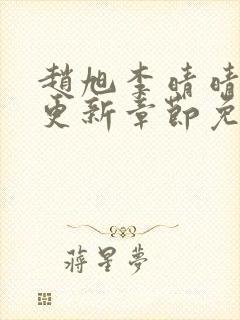 趙旭李晴晴
更新章節免
蔣星夢